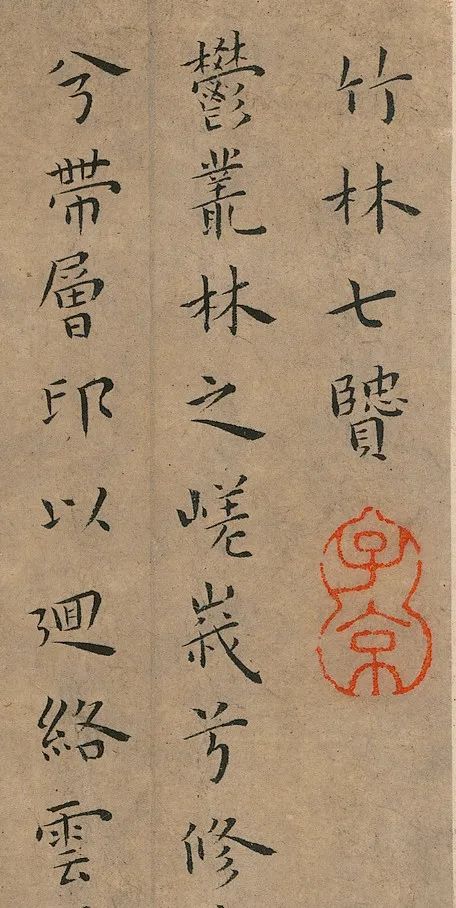 竹林七贒
子京
鬱叢林之嵯峩兮修
兮帶層邱以廻絡雲